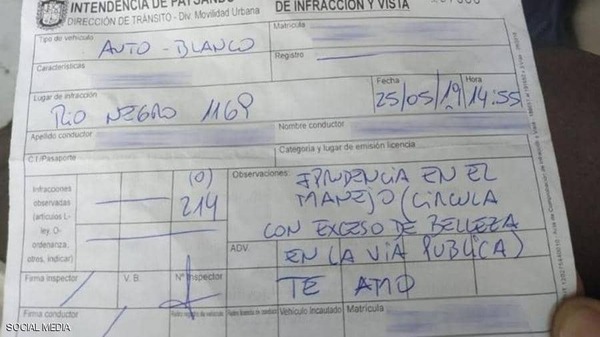 INTENDENCIA DE PAYSANDÚ
DIRECCIÓN DE TRÁNSITO - Div. Movilidad Urbana
DE INFRACCIÓN Y VISTA
Tipo de vehículo
AUTO - BLANCO
Matrícula
Características
Registro
Lugar de infracción
RIO NEGRO 1169
Fecha
25/05/19
Hora
14:55
Apellido conductor
Nombre conductor
C.I/Pasaporte
Categoría y lugar de emisión licencia
Infracciones
observadas
(artículos L-
ley, O-
ordenanza,
otros, indicar)
(O)
214
Observaciones:
IPRUDENCIA EN EL
MANEJO (CIRCULA
CON EXCESO DE BELLEZA
EN LA VIA PUBLICA)
ADV.
TE AMO
Firma Inspector
V. B.
Nº Inspector
Firma conductor
Vehículo Incautado
Matrícula
SOCIAL MEDIA